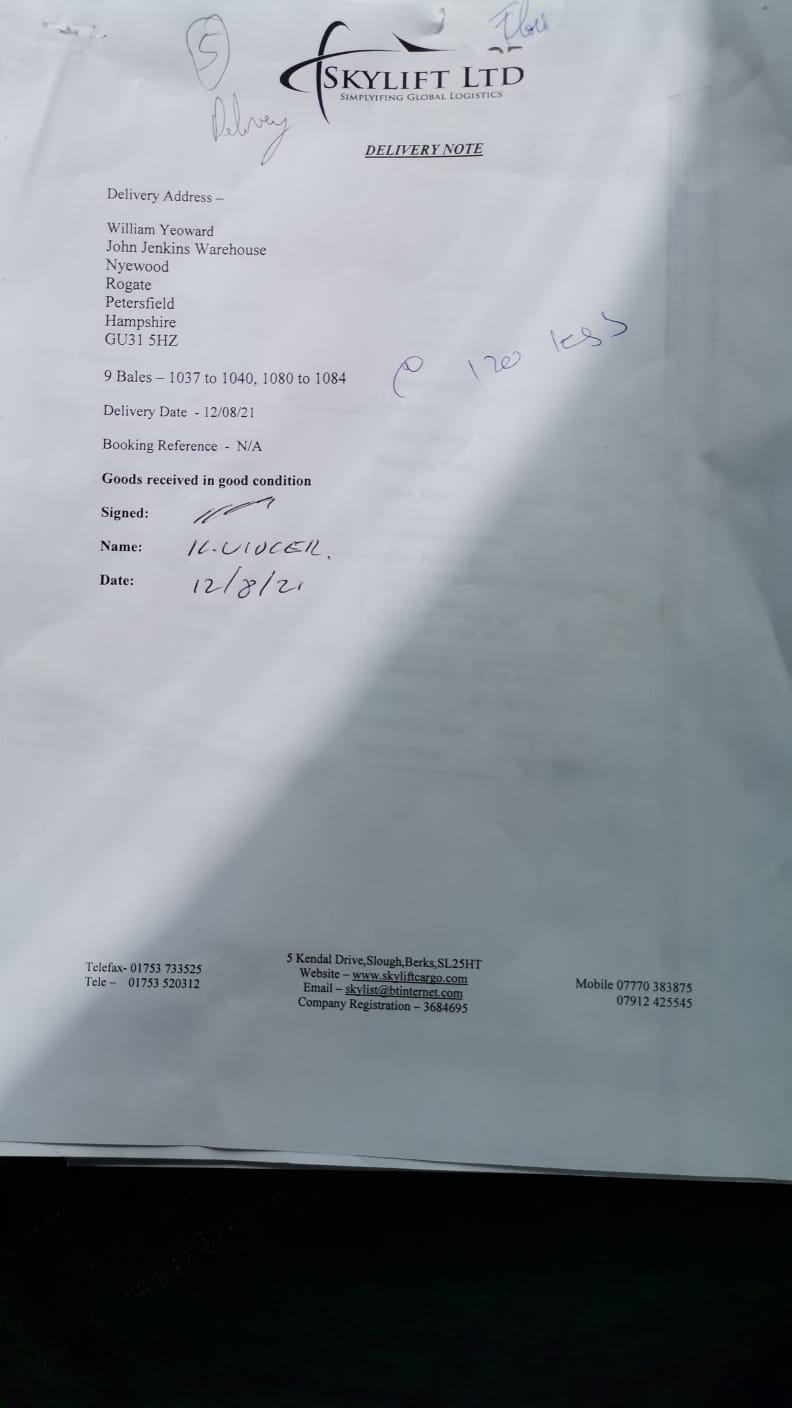 5
Delivey
SKYLIFT LTD
SIMPLYIFING GLOBAL LOGISTICS
DELIVERY NOTE
Delivery Address –
William Yeoward
John Jenkins Warehouse
Nyewood
Rogate
Petersfield
Hampshire
GU31 5HZ
@ 120 kgs
9 Bales – 1037 to 1040, 1080 to 1084
Delivery Date - 12/08/21
Booking Reference - N/A
Goods received in good condition
Signed:
Name:
Date: 12/8/21
Telefax- 01753 733525
Tele – 01753 520312
5 Kendal Drive,Slough,Berks,SL25HT
Website – www.skyliftcargo.com
Email – skylist@btinternet.com
Company Registration – 3684695
Mobile 07770 383875
07912 425545